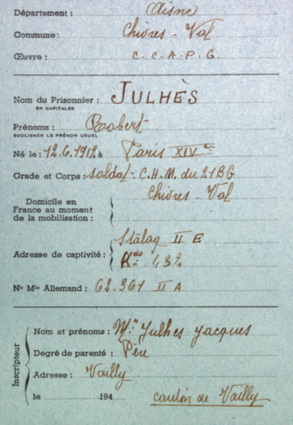 Département : Aisne
Commune : Chivres-Val
Œuvre : C.C.A.P.G.
Nom du Prisonnier : JULHÈS
EN CAPITALES
Prénoms : Robert
SOULIGNER LE PRÉNOM USUEL
Né le : 12.6.1912 à Paris XIVe
Grade et Corps : soldat - C.H.M. du 21 BG
Domicile en France au moment de la mobilisation : Chivres-Val
Adresse de captivité : Stalag II E
Kdo 432
No Mle Allemand : 62.361 II A
Inscripteur
Nom et prénoms : Mr Julhes Jacques
Degré de parenté : Père
Adresse : Vailly
le 194 canton de Vailly